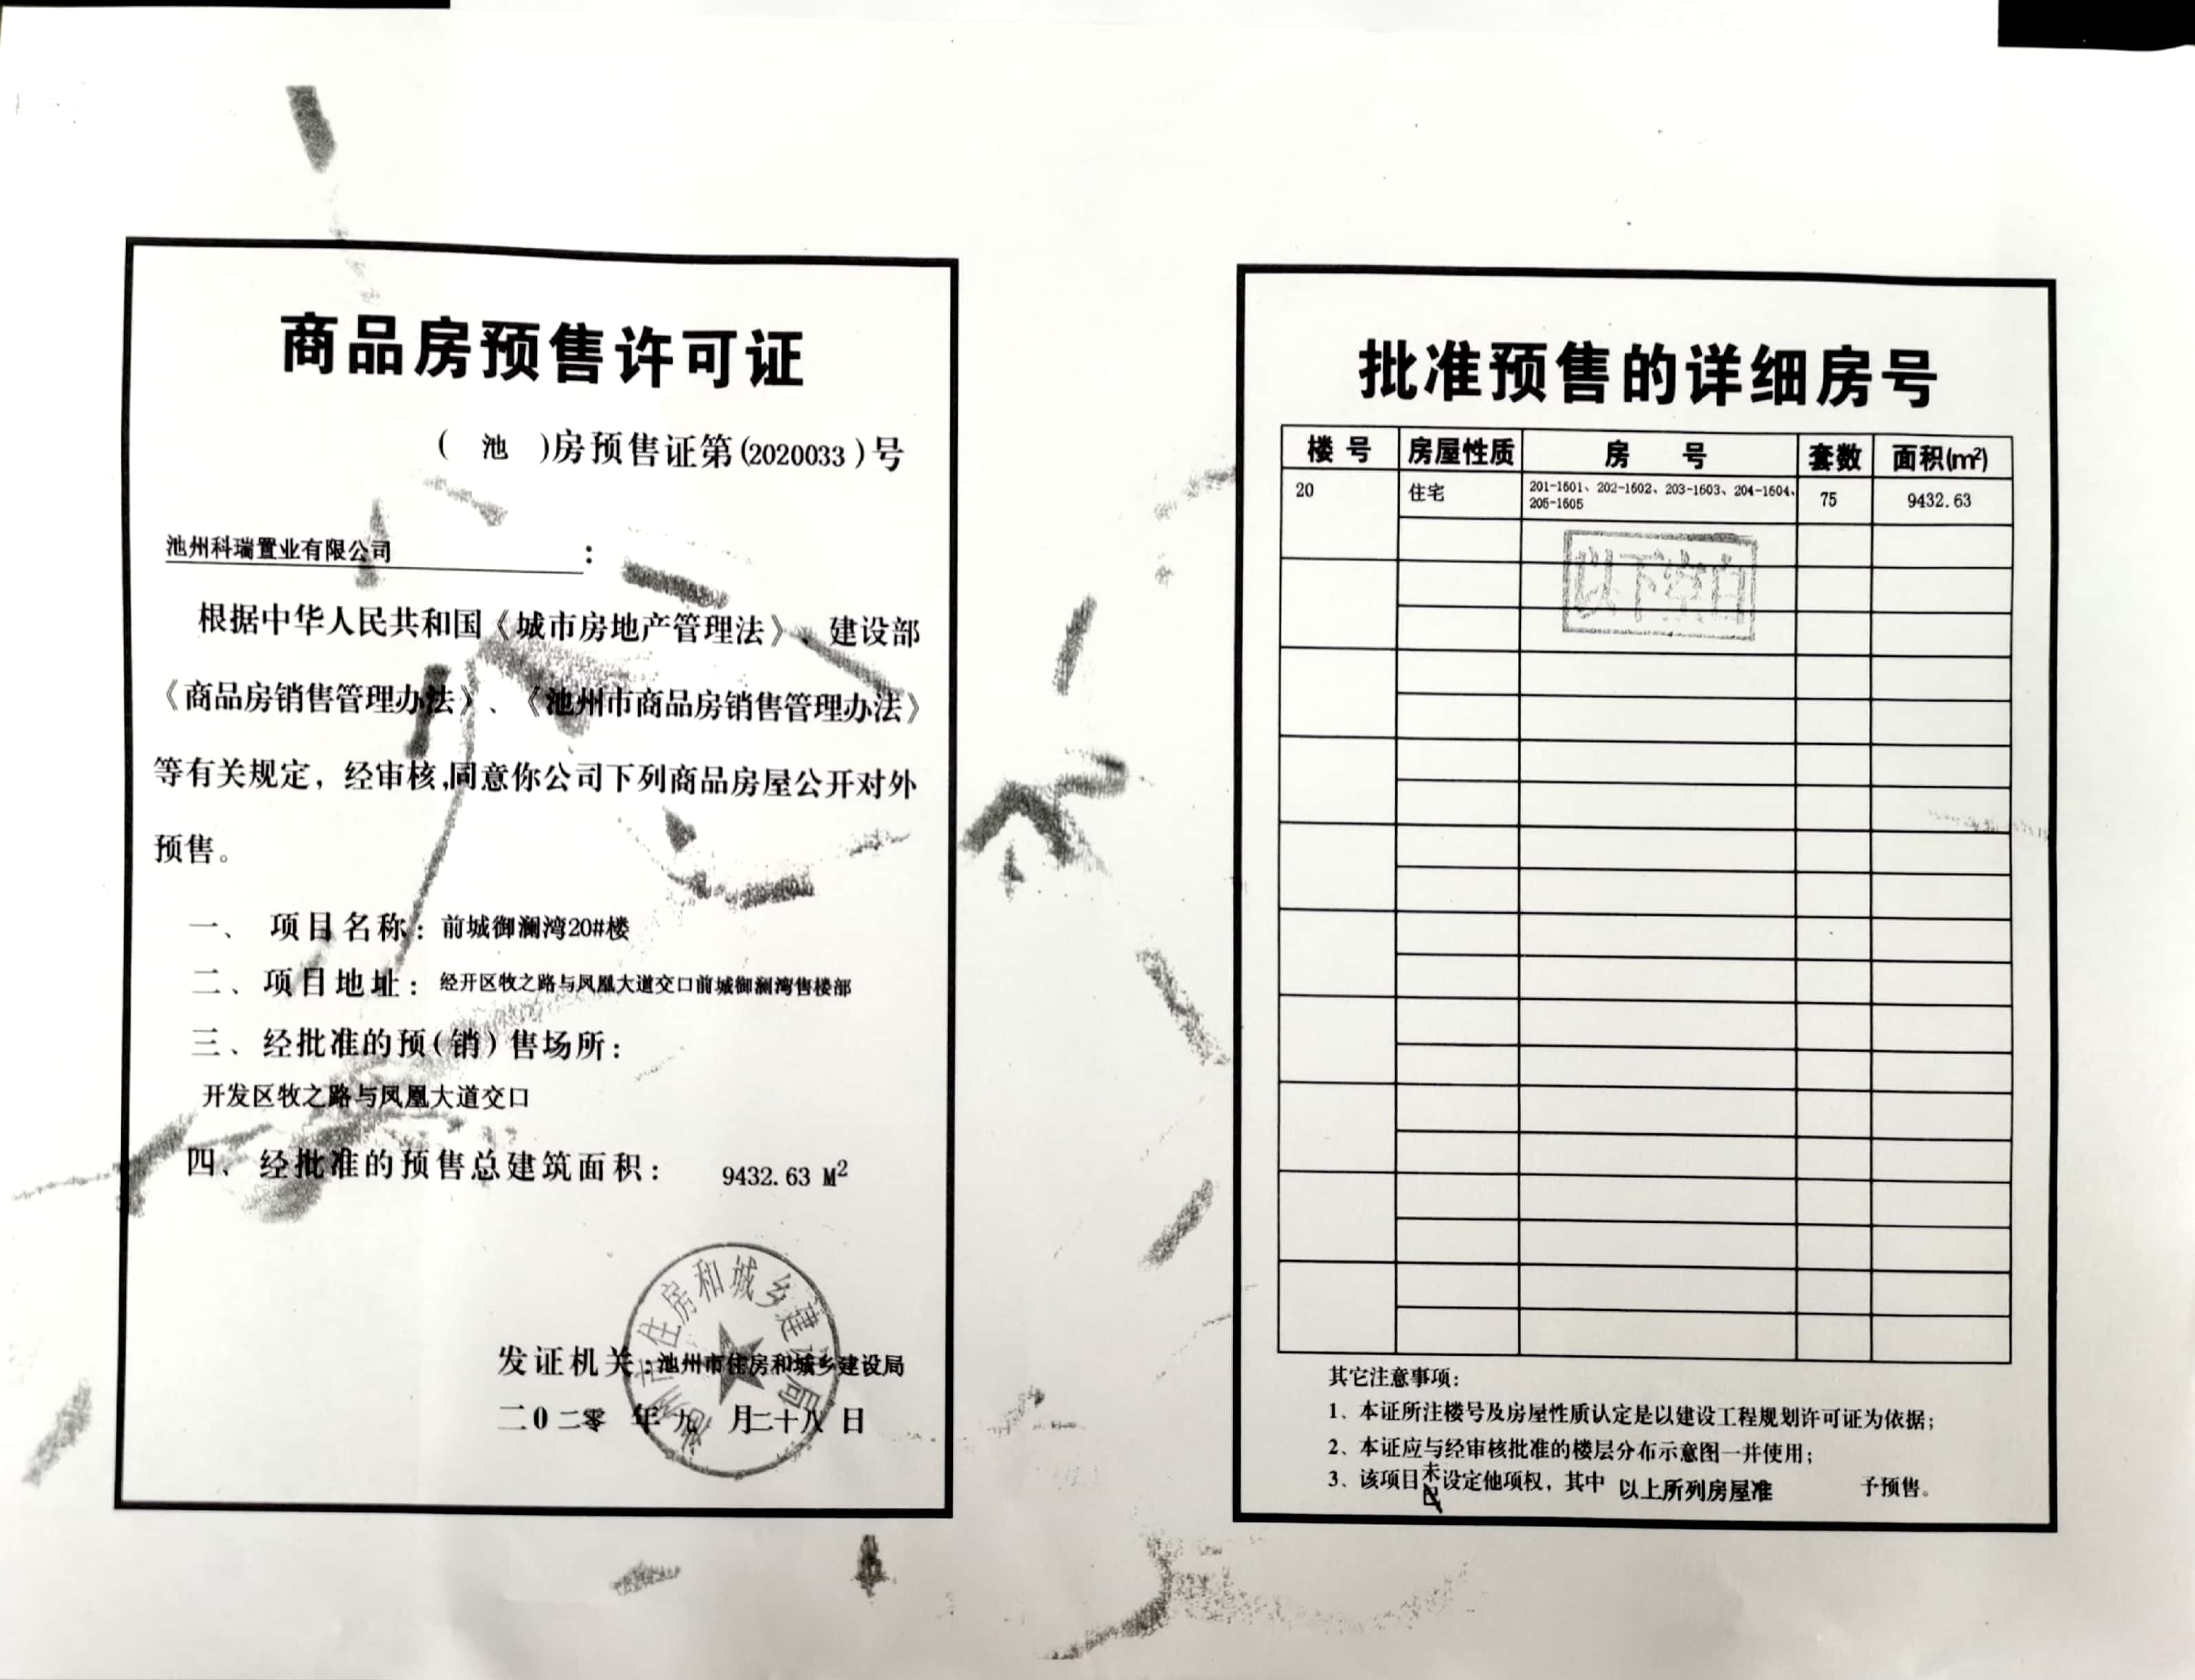 商品房预售许可证
( 池 )房预售证第(2020033)号
池州科瑞置业有限公司:
根据中华人民共和国《城市房地产管理法》、建设部
《商品房销售管理办法》、《池州市商品房销售管理办法》
等有关规定，经审核,同意你公司下列商品房屋公开对外
预售。
一、 项目名称: 前城御澜湾20#楼
二、项目地址: 经开区牧之路与凤凰大道交口前城御澜湾售楼部
三、经批准的预(销)售场所:
开发区牧之路与凤凰大道交口
四、经批准的预售总建筑面积: 9432.63 M²
池州市住房和城乡建设局
发证机关:池州市住房和城乡建设局
二0二零 年九 月二十八日
批准预售的详细房号
楼号 房屋性质 房 号 套数 面积(m²)
20 住宅 201-1601、202-1602、203-1603、204-1604、 75 9432.63
205-1605
以下空白
其它注意事项:
1、本证所注楼号及房屋性质认定是以建设工程规划许可证为依据;
2、本证应与经审核批准的楼层分布示意图一并使用;
3、该项目未设定他项权，其中 以上所列房屋准 予预售。